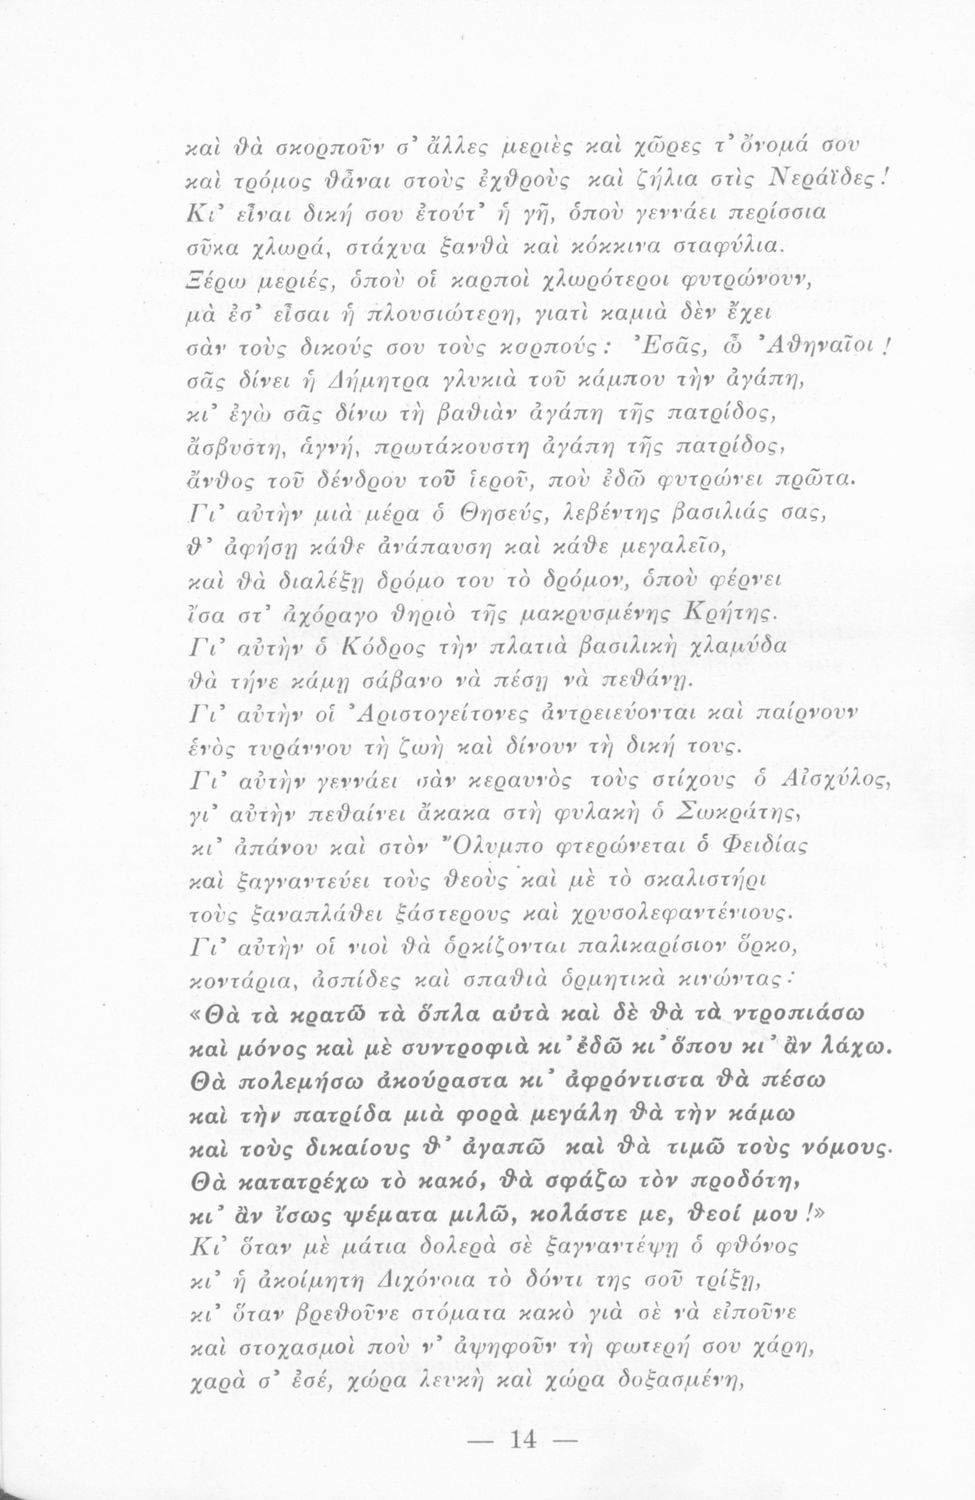 καὶ θὰ σκορποῦν σ’ ἄλλες μεριὲς καὶ χῶρες τ’ ὄνομά σου
καὶ τρόμος θἆναι στοὺς ἐχθροὺς καὶ ζήλια στὶς Νεράϊδες !
Κι’ εἶναι δική σου ἐτούτ’ ἡ γῆ, ὁποὺ γεννάει περίσσια
σῦκα χλωρά, στάχυα ξανθὰ καὶ κόκκινα σταφύλια.
Ξέρω μεριές, ὁποὺ οἱ καρποὶ χλωρότεροι φυτρώνουν,
μὰ ἐσ’ εἶσαι ἡ πλουσιώτερη, γιατὶ καμιὰ δὲν ἔχει
σὰν τοὺς δικούς σου τοὺς καρπούς : Ἐσᾶς, ὦ Ἀθηναῖοι !
σᾶς δίνει ἡ Δήμητρα γλυκιὰ τοῦ κάμπου τὴν ἀγάπη,
κι’ ἐγὼ σᾶς δίνω τὴ βαθιὰν ἀγάπη τῆς πατρίδος,
ἄσβυστη, ἁγνή, πρωτάκουστη ἀγάπη τῆς πατρίδος,
ἄνθος τοῦ δένδρου τοῦ ἱεροῦ, ποὺ ἐδῶ φυτρώνει πρῶτα.
Γι’ αὐτὴν μιὰ μέρα ὁ Θησεύς, λεβέντης βασιλιάς σας,
θ’ ἀφήσῃ κάθε ἀνάπαυση καὶ κάθε μεγαλεῖο,
καὶ θὰ διαλέξῃ δρόμο του τὸ δρόμον, ὁποὺ φέρνει
ἴσα στ’ ἀχόραγο θηριὸ τῆς μακρυσμένης Κρήτης.
Γι’ αὐτὴν ὁ Κόδρος τὴν πλατιὰ βασιλικὴ χλαμύδα
θὰ τήνε κάμῃ σάβανο νὰ πέσῃ νὰ πεθάνῃ.
Γι’ αὐτὴν οἱ Ἀριστογείτονες ἀντρειεύονται καὶ παίρνουν
ἑνὸς τυράννου τὴ ζωὴ καὶ δίνουν τὴ δική τους.
Γι’ αὐτὴν γεννάει σὰν κεραυνὸς τοὺς στίχους ὁ Αἰσχύλος,
γι’ αὐτὴν πεθαίνει ἄκακα στὴ φυλακὴ ὁ Σωκράτης,
κι’ ἀπάνου καὶ στὸν Ὄλυμπο φτερώνεται ὁ Φειδίας
καὶ ξαγναντεύει τοὺς θεοὺς καὶ μὲ τὸ σκαλιστήρι
τοὺς ξαναπλάθει ξάστερους καὶ χρυσολεφαντένιους.
Γι’ αὐτὴν οἱ νιοὶ θὰ ὁρκίζονται παλικαρίσιον ὅρκο,
κοντάρια, ἀσπίδες καὶ σπαθιὰ ὁρμητικὰ κινώντας·
«Θὰ τὰ κρατῶ τὰ ὅπλα αὐτὰ καὶ δὲ θὰ τὰ ντροπιάσω
καὶ μόνος καὶ μὲ συντροφιὰ κι’ ἐδῶ κι’ ὅπου κι’ ἂν λάχω.
Θὰ πολεμήσω ἀκούραστα κι’ ἀφρόντιστα θὰ πέσω
καὶ τὴν πατρίδα μιὰ φορὰ μεγάλη θὰ τὴν κάμω
καὶ τοὺς δικαίους θ’ ἀγαπῶ καὶ θὰ τιμῶ τοὺς νόμους.
Θὰ κατατρέχω τὸ κακό, θὰ σφάζω τὸν προδότη,
κι’ ἂν ἴσως ψέματα μιλῶ, κολάστε με, θεοί μου !»
Κι’ ὅταν μὲ μάτια δολερὰ σὲ ξαγναντέψῃ ὁ φθόνος
κι’ ἡ ἀκοίμητη Διχόνοια τὸ δόντι της σοῦ τρίξῃ,
κι’ ὅταν βρεθοῦνε στόματα κακὸ γιὰ σὲ νὰ εἰποῦνε
καὶ στοχασμοὶ ποὺ ν’ ἀψηφοῦν τὴ φωτερή σου χάρη,
χαρὰ σ’ ἐσέ, χώρα λευκὴ καὶ χώρα δοξασμένη,
— 14 —